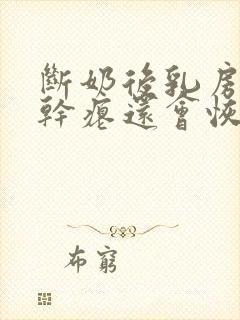 斷奶後乳房
幹癟還會恢
布窮